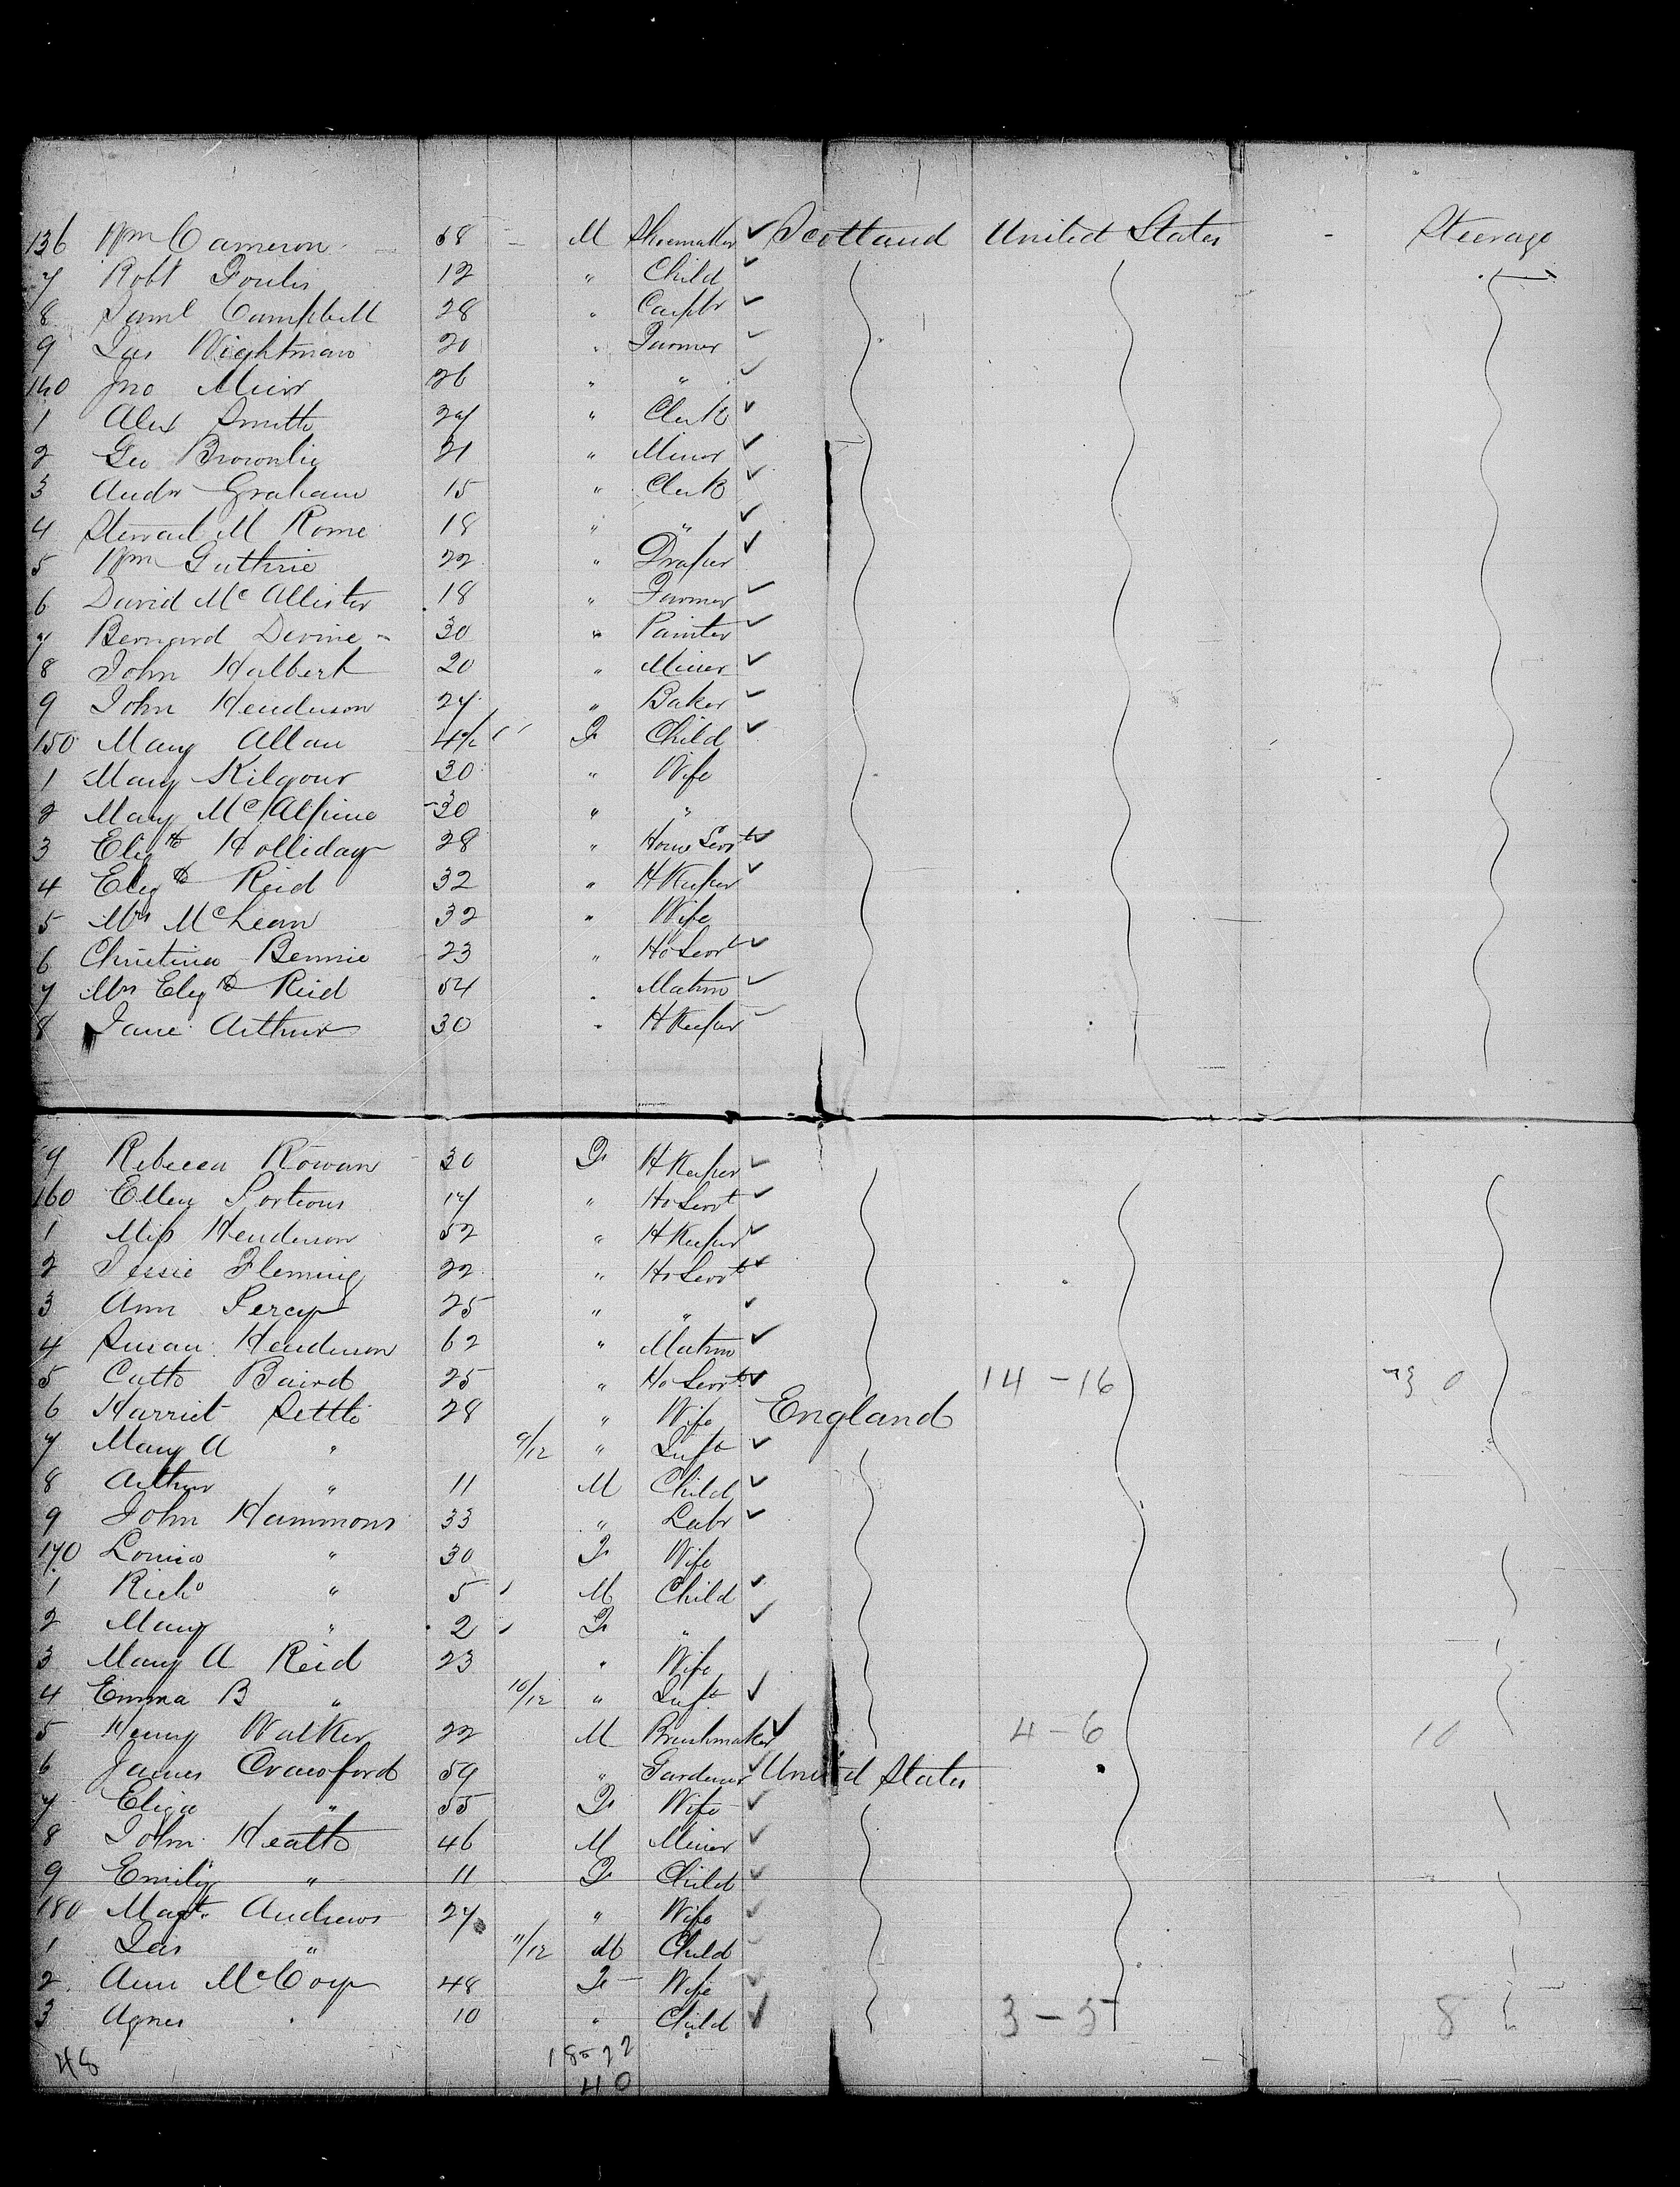 136 Wm Cameron 58 - M Shoemaker ✓ Scotland United States - Steerage
7 Robt Foulis 12 " Child ✓
8 Saml Campbell 28 " Carptr ✓
9 Jas Wightman 20 " Farmer ✓
140 Jno Muir 26 " " ✓
1 Alex Smith 27 " Clerk ✓
2 Geo Brownlie 21 " Miner ✓
3 Andw Graham 15 " Clerk ✓
4 Steward M Rome 18 " " ✓
5 Wm Guthrie 22 " Draper ✓
6 David McAllister 18 " Farmer ✓
7 Bernard Devine 30 " Painter ✓
8 John Halbert 20 " Miner ✓
9 John Henderson 24 " Baker ✓
150 Mary Allan F Child ✓
1 Mary Kilgour 30 " Wife
2 Mary McAlpine 30 " "
3 Elizth Holliday 28 " House Servt ✓
4 Elizth Reid 32 " HKeeper ✓
5 Mrs McLean 32 " Wife
6 Christina Bennie 23 " Ho Servt ✓
7 Mrs Elizth Reid 54 " Matron ✓
8 Jane Arthur 30 " HKeeper ✓
9 Rebecca Rowan 30 F HKeeper ✓
160 Elley Portious 17 " Ho Servt ✓
1 Miss Henderson 52 " HKeeper ✓
2 Jessie Fleming 22 " Ho Servt ✓
3 Ann Percy 25 " " ✓
4 Susan Henderson 62 " Matron ✓
5 Cath Baird 25 " Ho Servt ✓ 14-16 30
6 Harriet Settle 28 " Wife England
7 Mary A " 9/12 " Inft ✓
8 Arthur " 11 M Child ✓
9 John Hammons 33 " Labr ✓
170 Louisa " 30 F Wife
1 Richd " 5 M Child ✓
2 Mary " 2 F " ✓
3 Mary A Reid 23 " Wife
4 Emma B " 10/12 " Inft ✓
5 Henry Walker 22 M Brushmaker ✓ 4-6 10
6 James Crawford 59 " Gardener ✓ United States
7 Eliza " 55 F Wife ✓
8 John Heath 46 M Miner ✓
9 Emily " 11 F Child ✓
180 Magt. Andrews 27 " Wife ✓
1 Jas " 11/12 M Child
2 Ann McCoy 48 F Wife ✓
3 Agnes 10 " Child ✓ 3-5 8
48 18-22
40